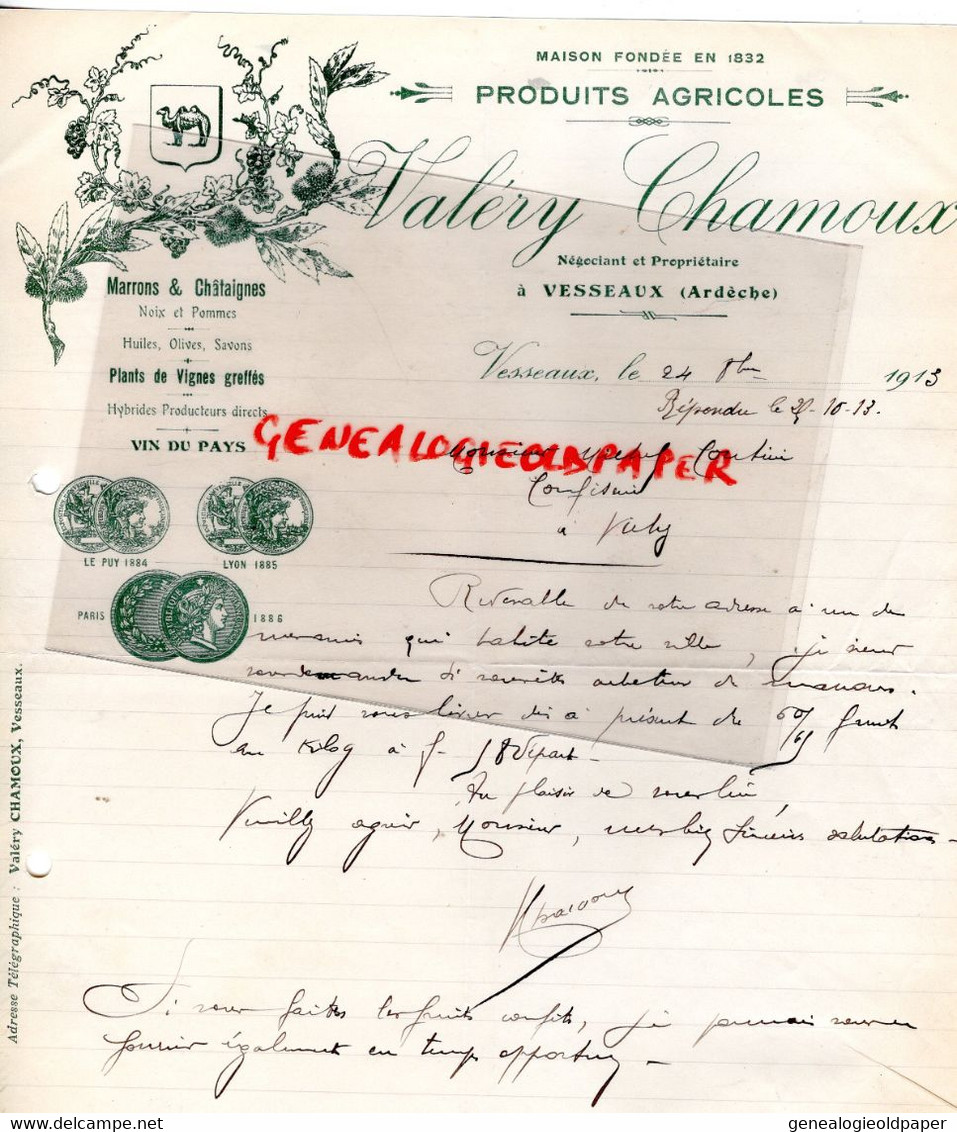 MAISON FONDÉE EN 1832
PRODUITS AGRICOLES
Valéry Chamoux
Négociant et Propriétaire
à VESSEAUX (Ardèche)
Marrons & Châtaignes
Noix et Pommes
Huiles, Olives, Savons
Plants de Vignes greffés
Hybrides Producteurs directs
VIN DU PAYS
Vesseaux, le 24 8bre 1913
Répondu le 25-10-13.
GENEALOGIEOLDPAPER
Monsieur
Confiserie
à
LE PUY 1884
LYON 1885
PARIS 1886
Redevable de votre adresse à un de
mes amis qui habite votre ville, je viens
vous demander si vous êtes acheteur de marrons.
Je puis vous livrer dès à présent du 60/65 fruits
au kilog à f. 18 départ.
Au plaisir de vous lire,
Veuillez agréer, Monsieur, mes bien sincères salutations -
Chamoux
Si vous faites les fruits confits, je pourrais vous en
fournir également en temps opportun -
Adresse Télégraphique : Valéry CHAMOUX, Vesseaux.
genealogieoldpaper